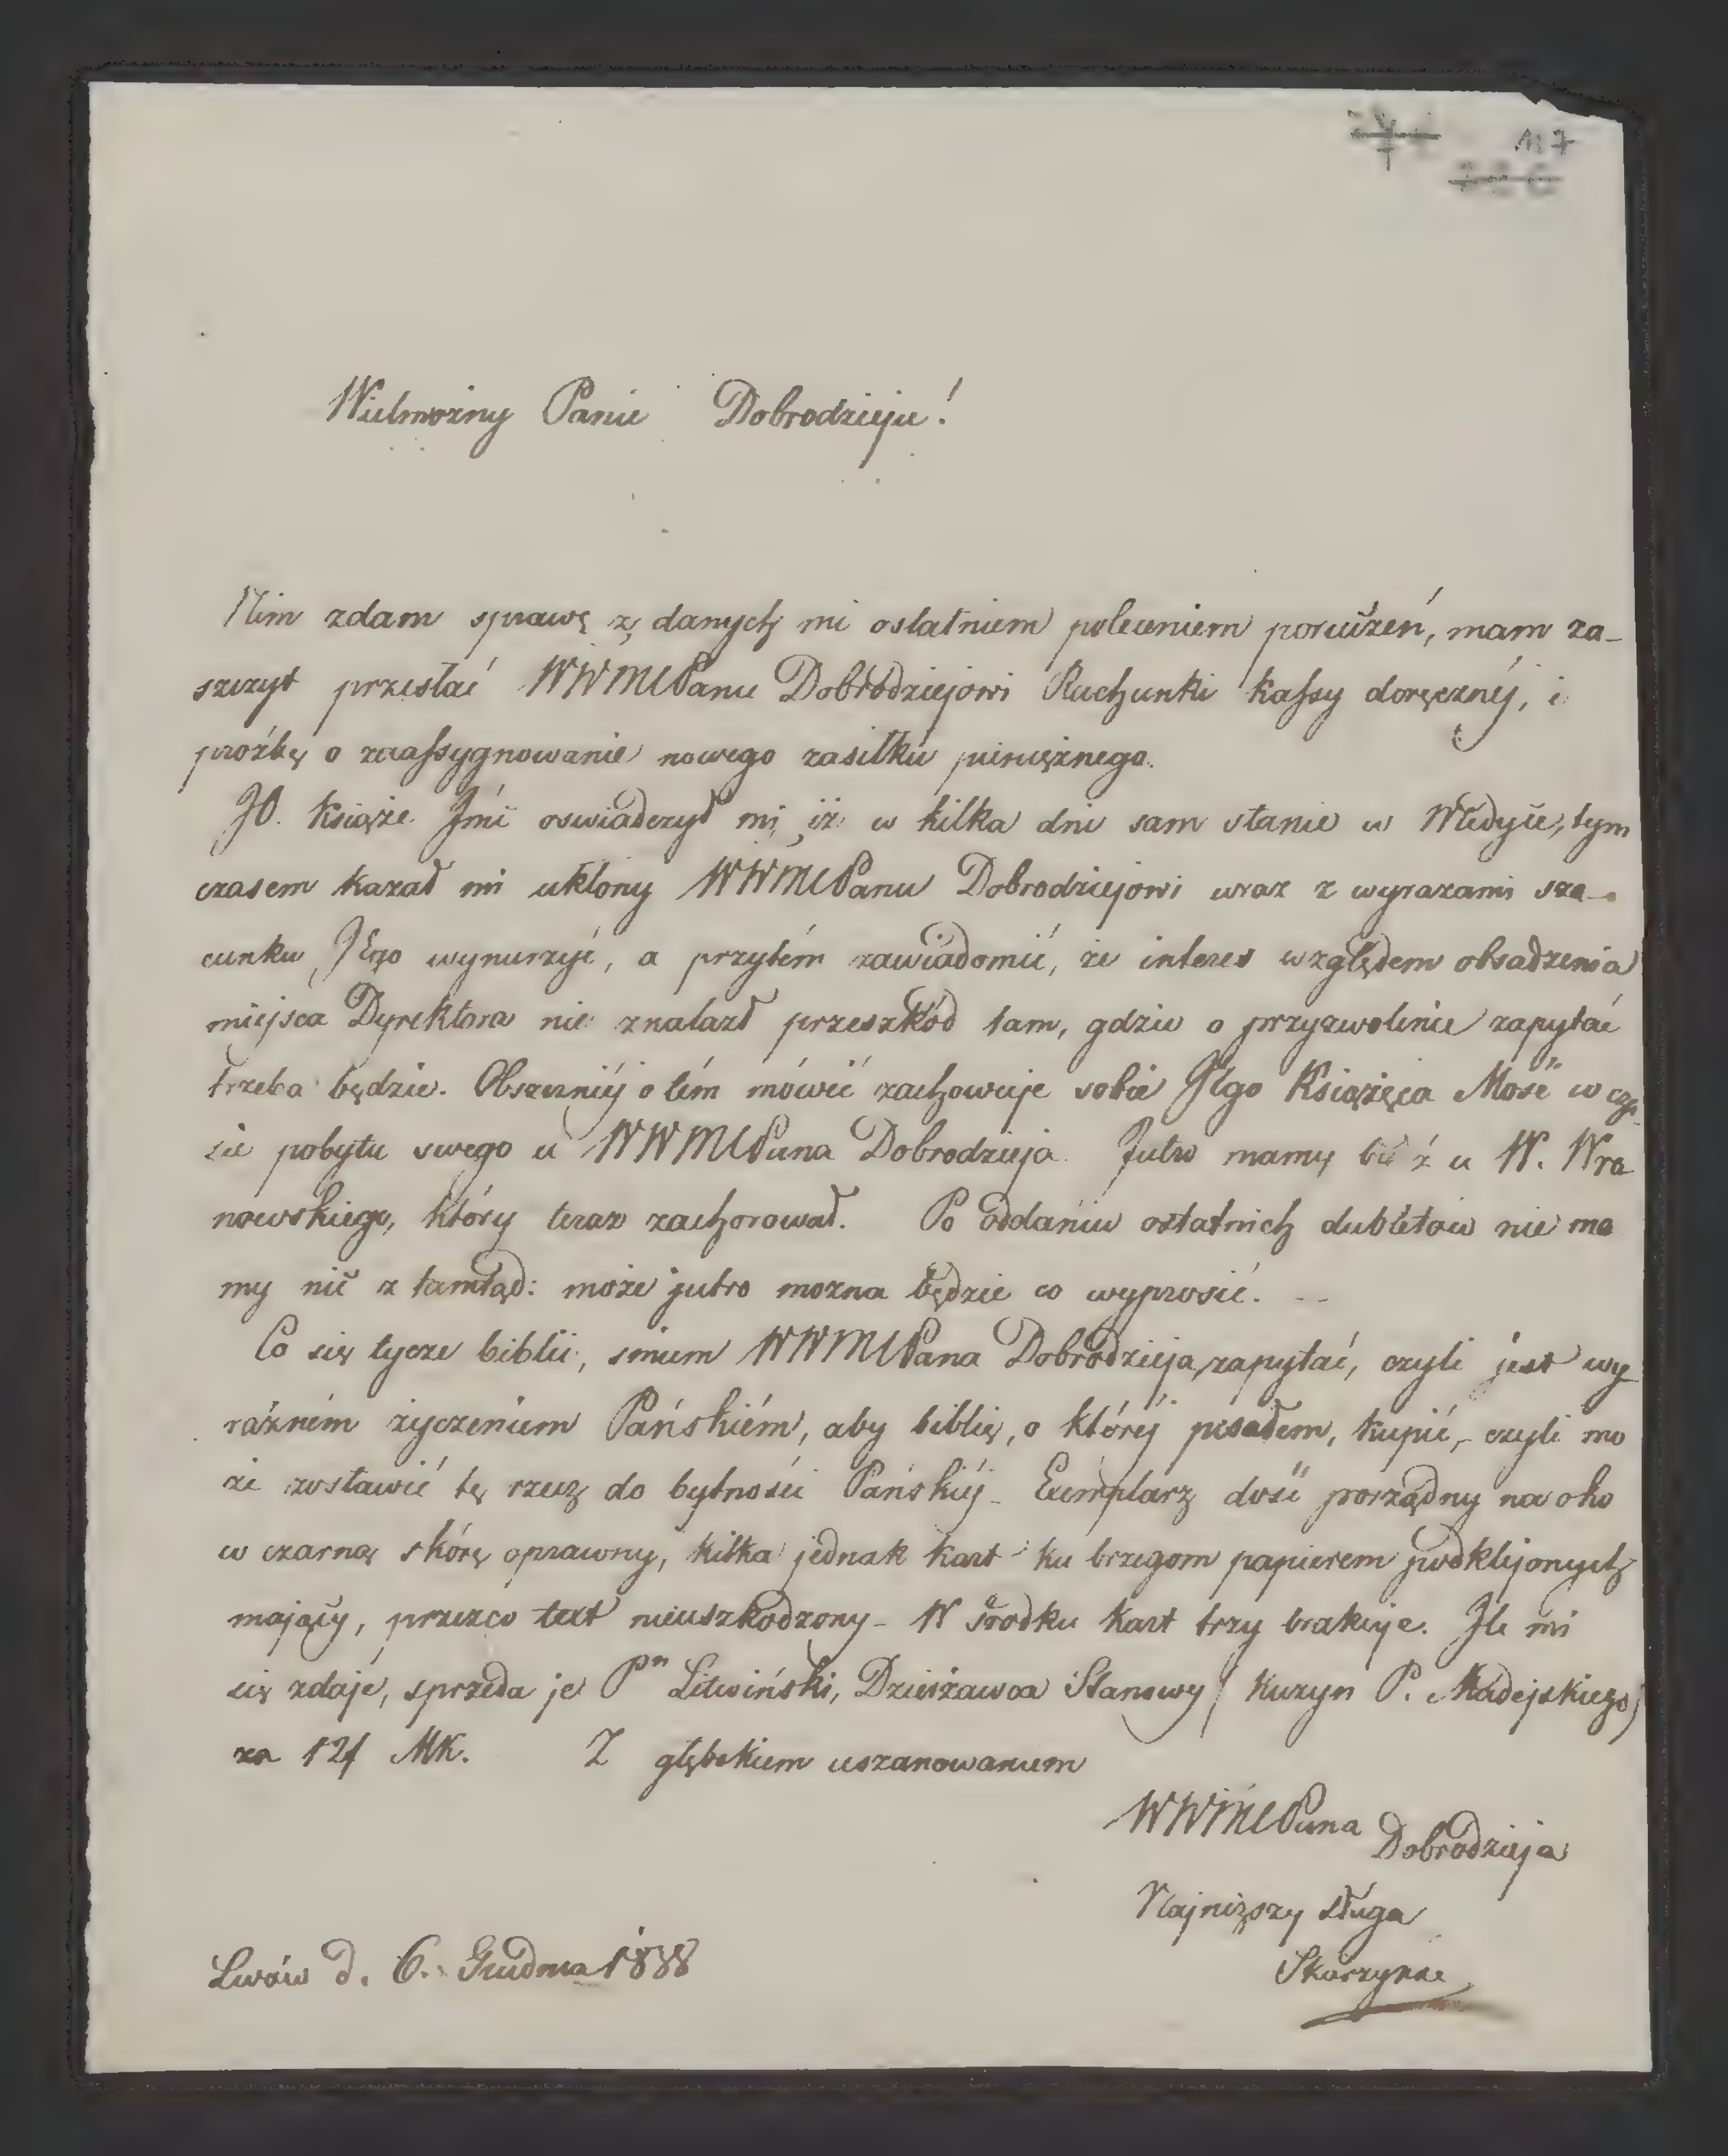 117
Wielmożny Panie Dobrodzieju!
Nim zdam sprawę z danych mi ostatniem poleceniem poruczeń, mam za-
szczyt przesłać WWMCPanu Dobrodziejowi Rachunki kassy doręcznéj, i
proźbę o zaassygnowanie nowego zasiłku pieniężnego.
JO. Książe Jmć oswiadczył mi, iż w kilka dni sam stanie w Medyce, tym
czasem kazał mi ukłony WWMCPanu Dobrodziejowi wraz z wyrazami sza-
cunku JEgo wynurzyć, a przytém zawiadomić, że interes względem obsadzenia
miejsca Dyrektora nie znalazł przeszkód tam, gdzie o przyzwolenie zapytać
trzeba będzie. Obszerniéj o tém mówić zachowuje sobie JEgo Książęca Mość w cza-
sie pobytu swego u WWMCPana Dobrodzieja. Jutro mamy być u W. Wro
nowskiego, który teraz zachorował. Po oddaniu ostatnich dubletów nie ma
my nic z tamtąd: może jutro mozna będzie co wyprosić. --
Co się tycze biblii, smiem WWMCPana Dobrodzieja zapytać, czyli jest wy
raźném życzeniem Pańskiém, aby biblię, o któréj pisałem, kupić, - czyli mo
że zostawić tę rzecz do bytności Pańskiéj - Exemplarz dość porządny na oko
w czarną skórę oprawny, kilka jednak kart ku brzegom papierem podklejonych
mający, przezco text nieuszkodzony - W środku kart trzy brakuje. Jle mi
się zdaje, sprzeda je Pn Litwiński, Dzierżawca Stanowy (kuzyn P. Madejskiego)
za 12f MK. Z głębokiem uszanowaniem
WWMCPana Dobrodzieja
Najniższy sługa
Lwów d. 6. Grudnia 1838